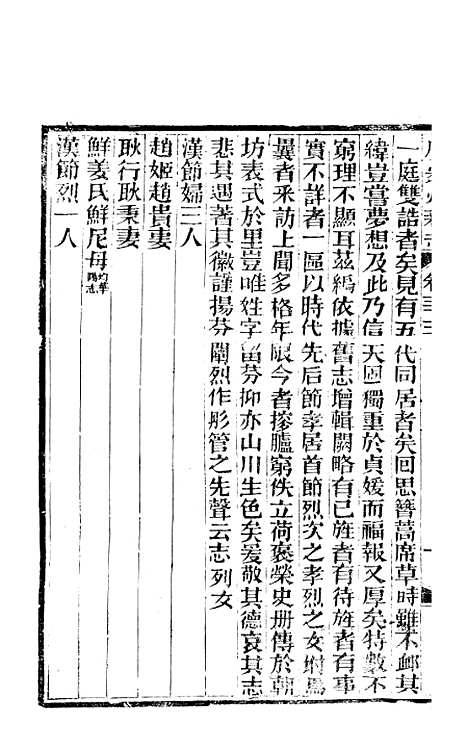 一庭雙誥者矣見有五代同居者矣回思簪蒿席草時雖不邮其
緯豈嘗夢想及此乃信天固獨重於貞媛而福報又厚矣特數不
窮理不顯耳茲編依據舊志增輯闕略有已旌者有待旌者有事
實不詳者一區以時代先后節孝居首節烈次之孝烈之女附焉
曩者釆訪上聞多格年限今者摉臚窮佚立荷褒榮史册傳於朝
坊表式於里豈唯姓字留芬抑亦山川生色矣爰敬其德哀其志
悲其遇著其徽謹揚芬闡烈作彤管之先聲云志列女
漢節婦三人
趙姬趙貴妻
耿行耿秉妻
鮮姜氏鮮尼母均華陽志
漢節烈一人